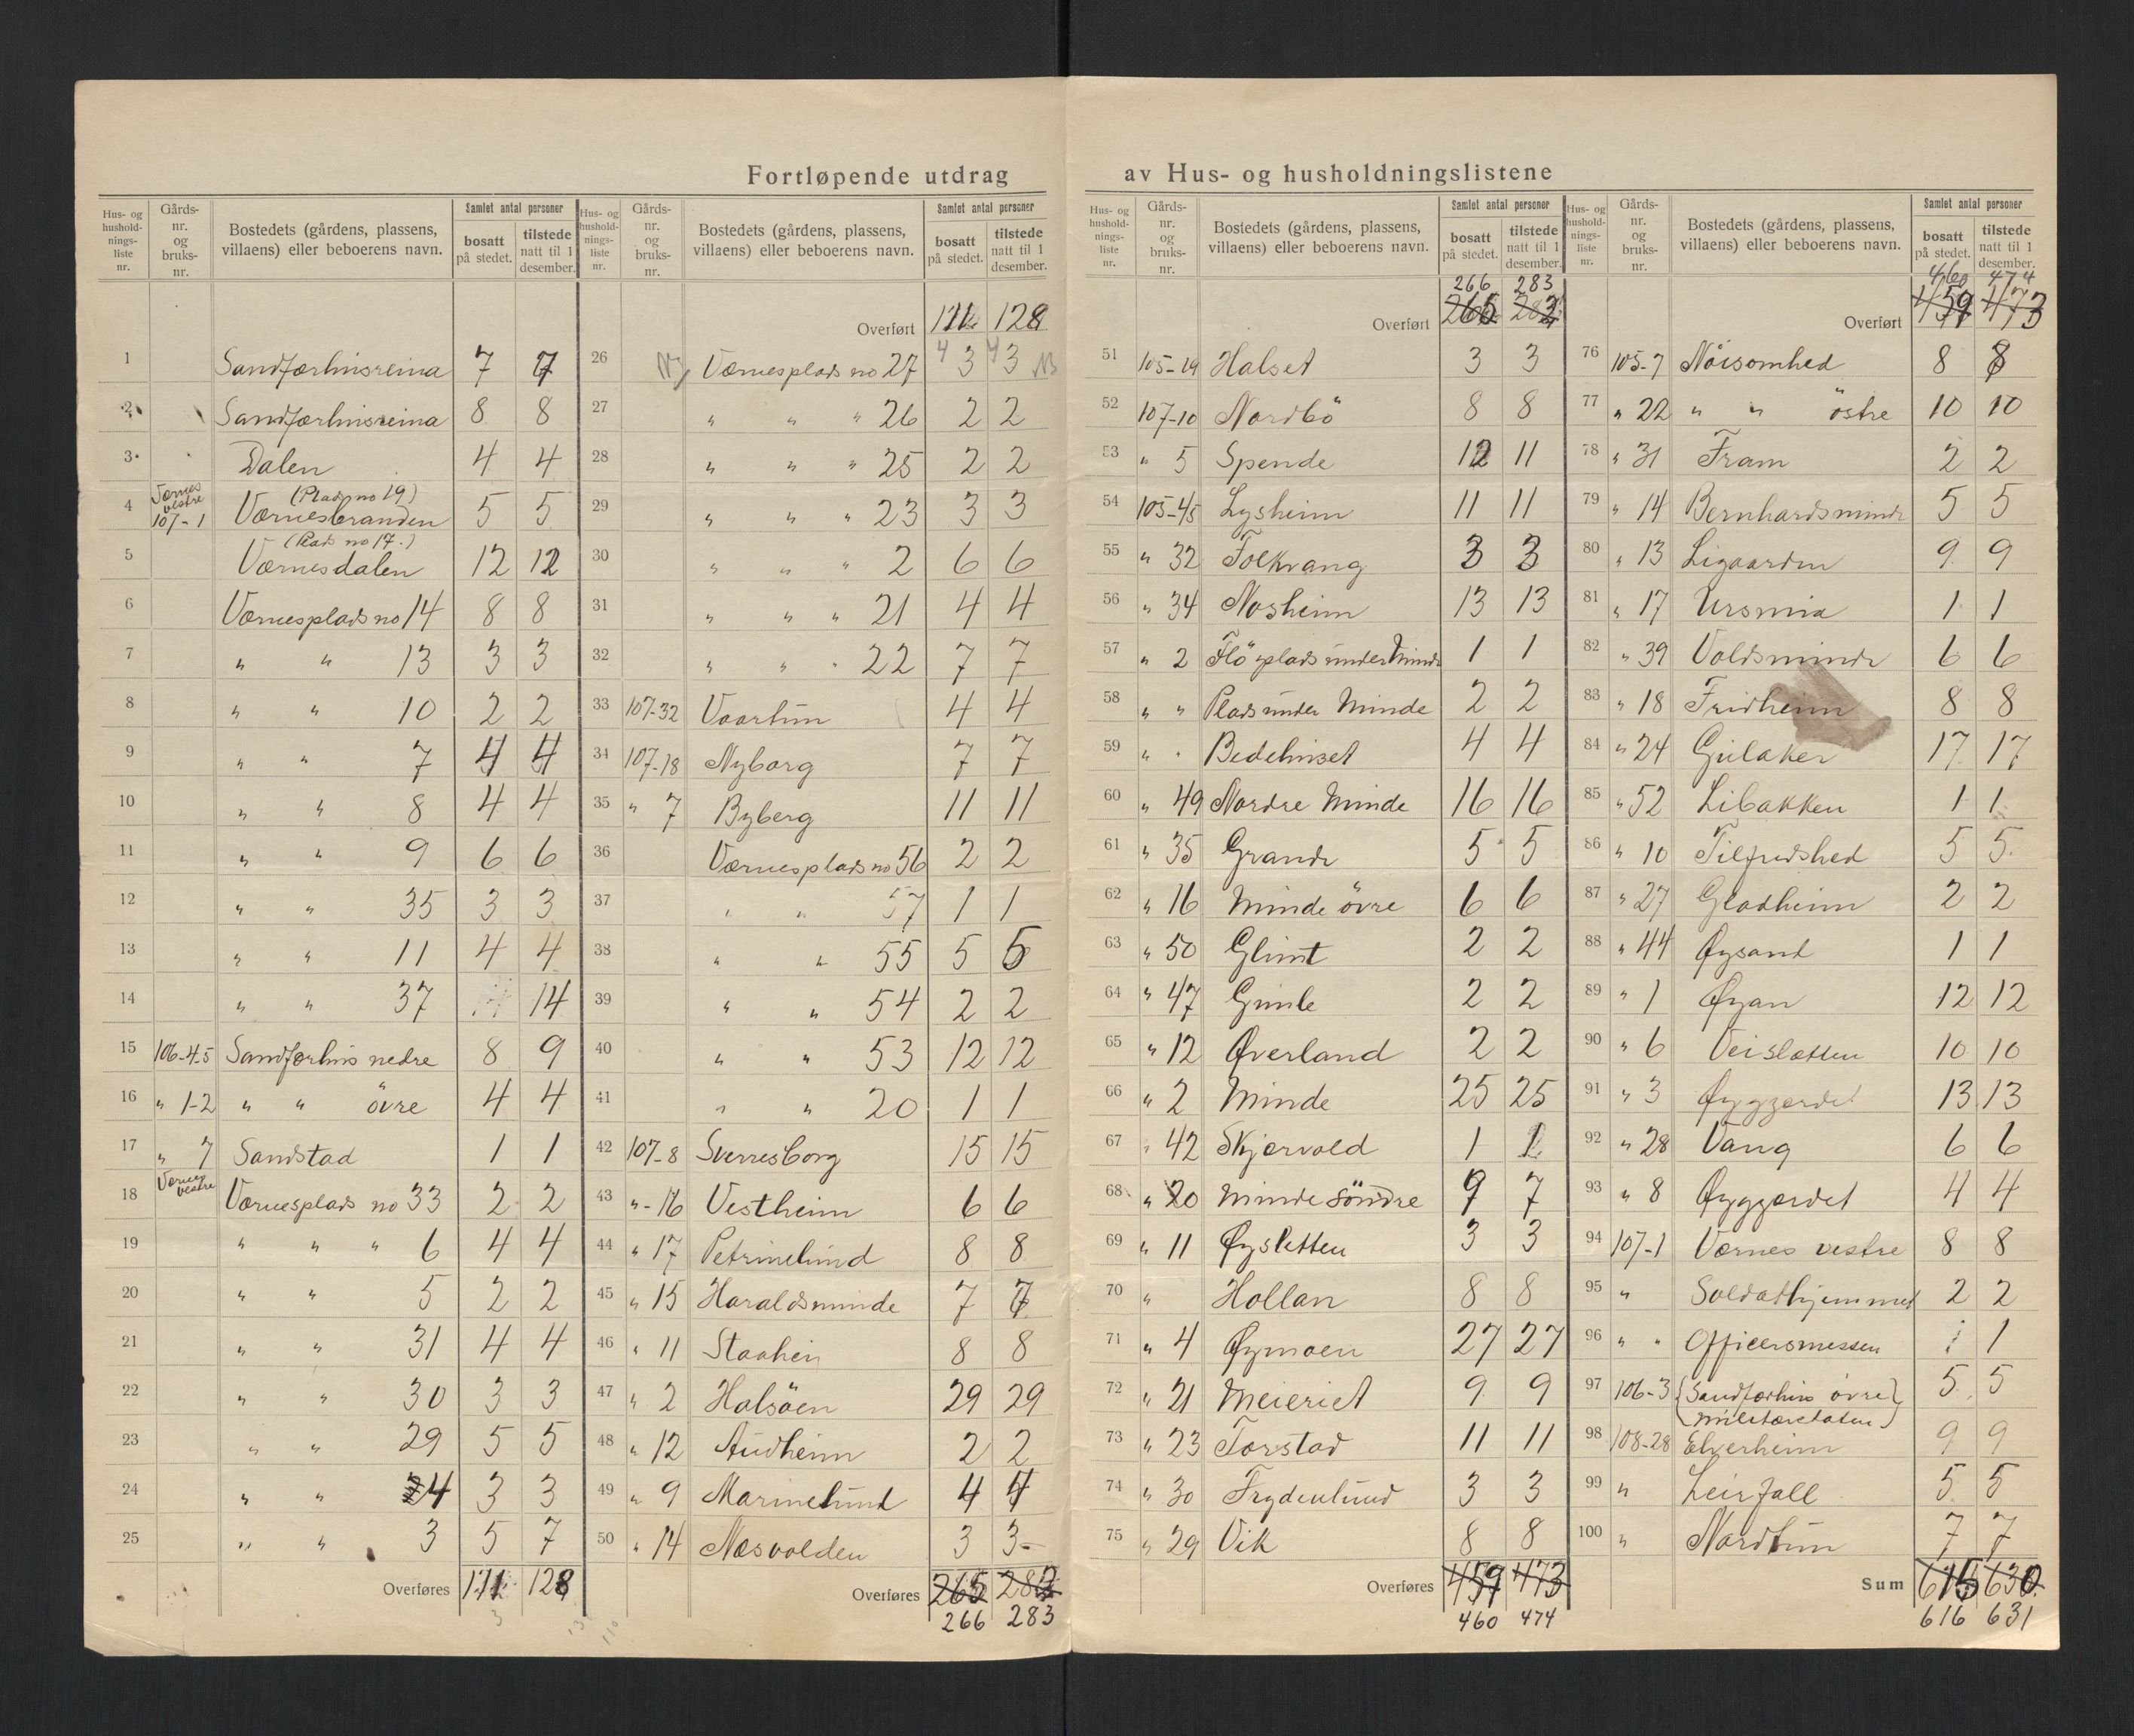 Fortløpende utdrag av Hus- og husholdningslistene
Hus- og hushold-nings-liste nr. Gårds-nr. og bruks-nr. Bostedets (gårdens, plassens, villaens) eller beboerens navn. Samlet antal personer bosatt på stedet. tilstede natt til 1 desember.
1 Sandfærhusreina 7 7
2 Sandfærhusreina 8 8
3 Dalen 4 4
4 Værnes vestre 107-1 (Plads no 19) Værnesbranden 5 5
5 (Plads no 17.) Værnesdalen 12 12
6 Værnesplads no 14 8 8
7 " " 13 3 3
8 " " 10 2 2
9 " " 7 4 4
10 " " 8 4 4
11 " " 9 6 6
12 " " 35 3 3
13 " " 11 4 4
14 " " 37 14
15 106-4-5 Sandfærhus nedre 8 9
16 " 1-2 " " övre 4 4
17 " 7 Sandstad 1 1
18 Værnes vestre Værnesplads no 33 2 2
19 " " " 6 4 4
20 " " 5 2 2
21 " " 31 4 4
22 " " 30 3 3
23 " " 29 5 5
24 " " 4 3 3
25 " " 3 5 7
Overføres 128
Hus- og hushold-nings-liste nr. Gårds-nr. og bruks-nr. Bostedets (gårdens, plassens, villaens) eller beboerens navn. Samlet antal personer bosatt på stedet. tilstede natt til 1 desember.
Overført 128
26 Værnesplads no 27 4 3 4 3
27 " " " 26 2 2
28 " " " 25 2 2
29 " " " 23 3 3
30 " " " 2 6 6
31 " " " 21 4 4
32 " " " 22 7 7
33 107-32 Vaartun 4 4
34 107-18 Nyborg 7 7
35 " 7 Byberg 11 11
36 Værnesplads no 56 2 2
37 " " 57 1 1
38 " " 55 5 5
39 " " 54 2 2
40 " " 53 12 12
41 " " 20 1 1
42 107-8 Sverresborg 15 15
43 "-16 Vestheim 6 6
44 " 17 Petrinelund 8 8
45 " 15 Haraldsminde 7 7
46 " 11 Staahein 8 8
47 " 2 Halsöen 29 29
48 " 12 Audheim 2 2
49 " 9 Marinelund 4 4
50 " 14 Næsvolden 3 3-
Overføres 265 282
266 283
Hus- og hushold-nings-liste nr. Gårds-nr. og bruks-nr. Bostedets (gårdens, plassens, villaens) eller beboerens navn. Samlet antal personer bosatt på stedet. tilstede natt til 1 desember.
266 283
Overført 265 282
51 105-19 Halset 3 3
52 107-10 Nordbö 8 8
53 " 5 Spende 12 11
54 105-45 Lysheim 11 11
55 " 32 Folkvang 3 3
56 " 34 Mosheim 13 13
57 " 2 Flöyplads under Minde 1 1
58 " " Plads under Minde 2 2
59 " " Bedehuset 4 4
60 " 49 Nordre Minde 16 16
61 " 35 Grande 5 5
62 " 16 Minde övre 6 6
63 " 50 Glimt 2 2
64 " 47 Gimle 2 2
65 " 12 Øverland 2 2
66 " 2 Minde 25 25
67 " 42 Skjervold 1 1
68 " 20 Minde Söndre 9 7
69 " 11 Øysletten 3 3
70 " Hollan 8 8
71 " 4 Øymoen 27 27
72 " 21 Meieriet 9 9
73 " 23 Torstad 11 11
74 " 30 Frydenlund 3 3
75 " 29 Vik 8 8
Overføres 459 473
460 474
Hus- og hushold-nings-liste nr. Gårds-nr. og bruks-nr. Bostedets (gårdens, plassens, villaens) eller beboerens navn. Samlet antal personer bosatt på stedet. tilstede natt til 1 desember.
460 474
Overført 459 473
76 105-7 Nöisomhed 8 8
77 " 22 " " östre 10 10
78 " 31 Fram 2 2
79 " 14 Bernhardsminde 5 5
80 " 13 Ligaarden 9 9
81 " 17 Ursmia 1 1
82 " 39 Voldsminde 6 6
83 " 18 Fridheim 8 8
84 " 24 Gulaker 17 17
85 " 52 Libakken 1 1
86 " 10 Tilfredshed 5 5
87 " 27 Gladheim 2 2
88 " 44 Øysand 1 1
89 " 1 Øyan 12 12
90 " 6 Veisletten 10 10
91 " 3 Øyggardet 13 13
92 " 28 Vang 6 6
93 " 8 Øyggardet 4 4
94 107-1 Værnes vestre 8 8
95 " Soldathjemmet 2 2
96 " " Officersmessen 1 1
97 106-3 (Sandfærhus övre) (Militæretaten) 5 5
98 108-28 Elverheim 9 9
99 " Leirfall 5 5
100 " Nordtun 7 7
Sum 615 630
616 631